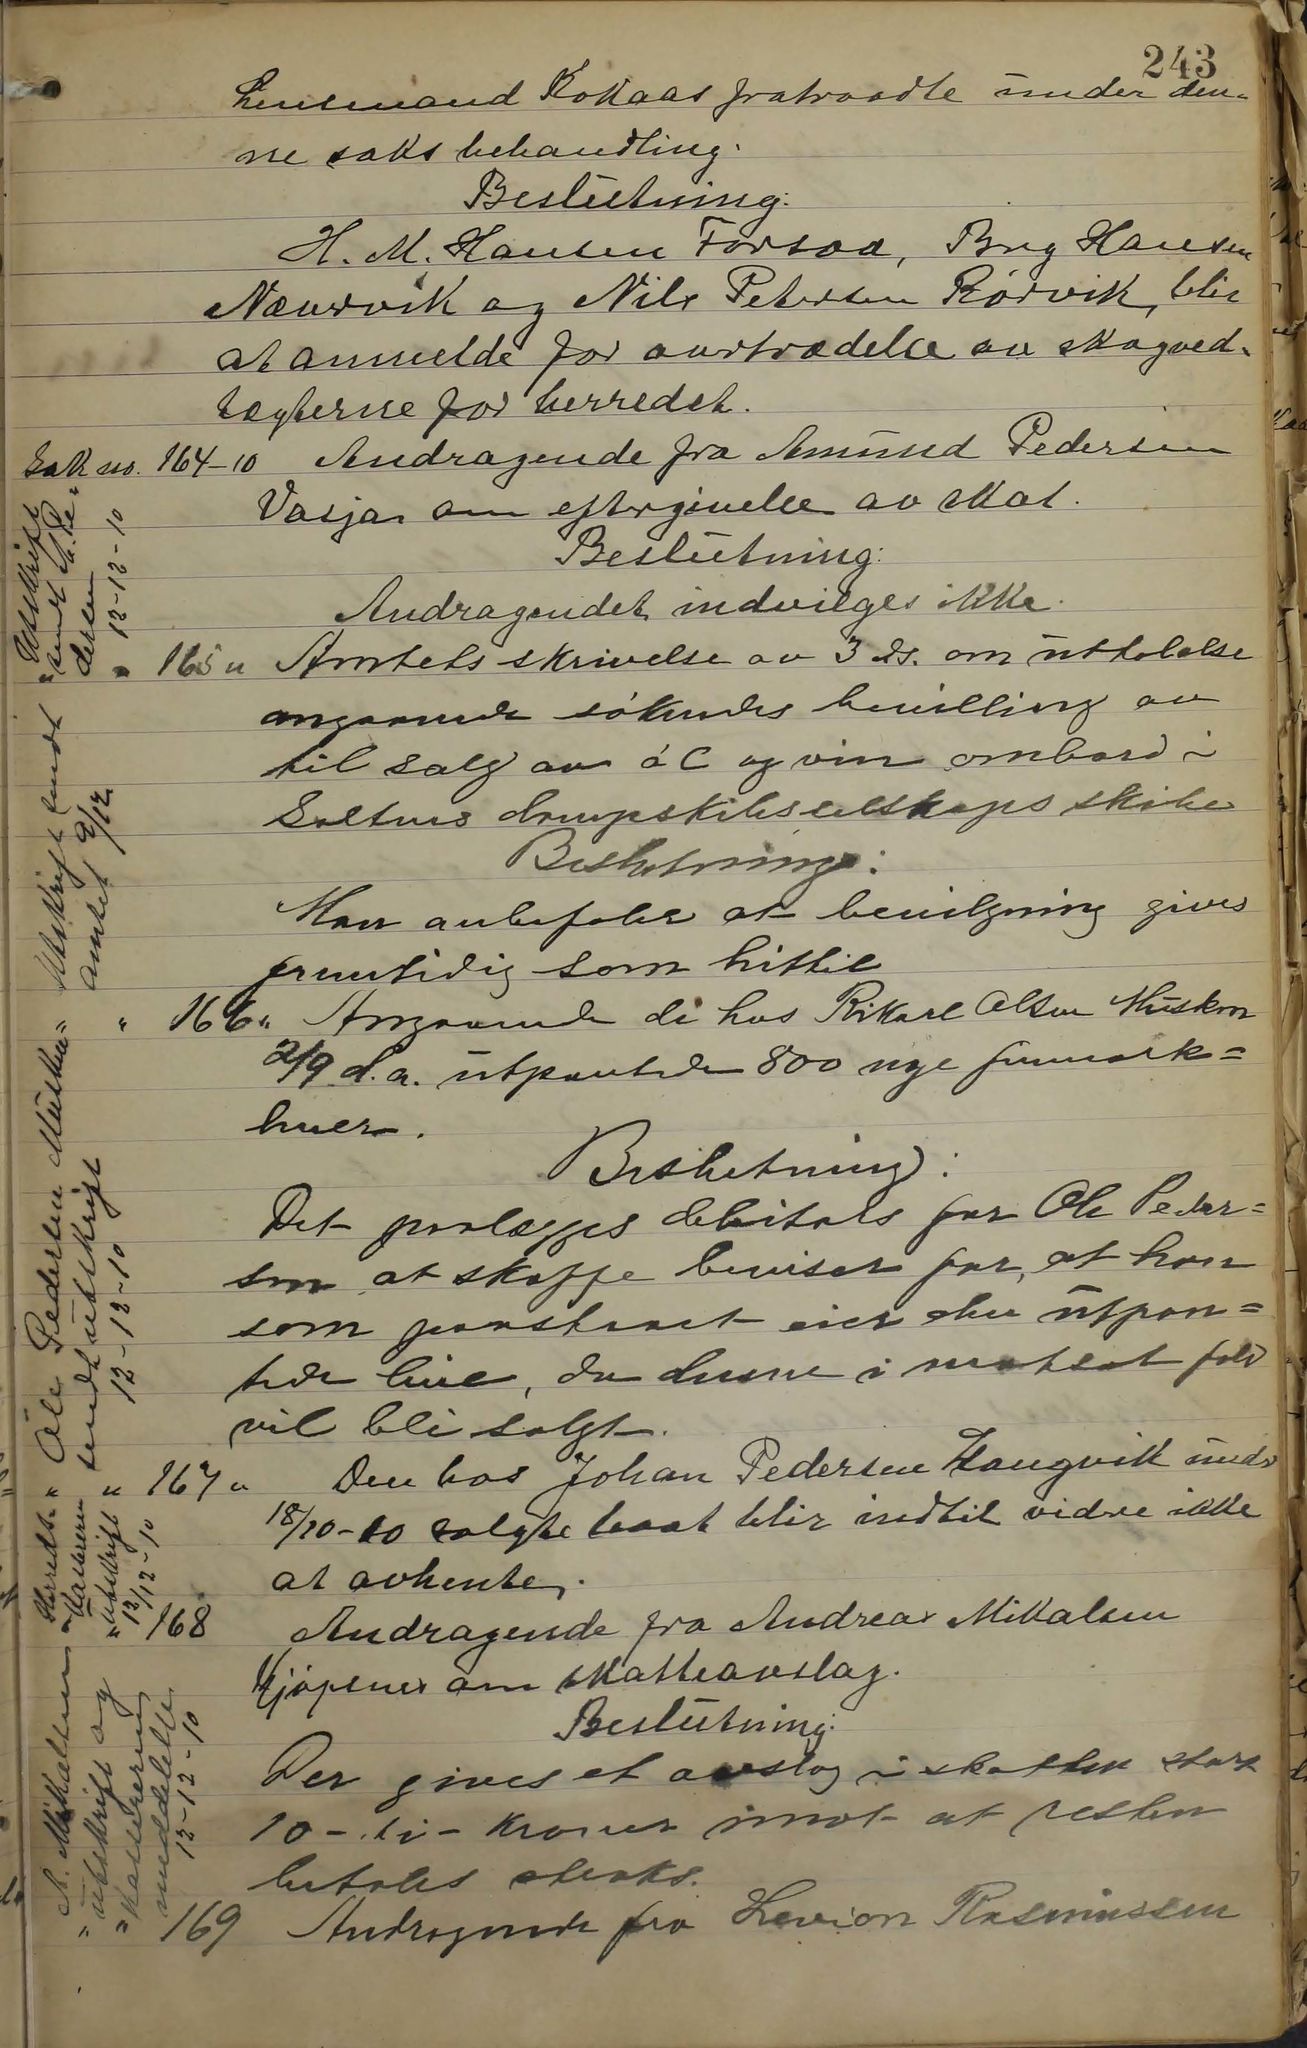 243
Lensmand Kokaas fratraadte under den-
ne saks behandling.
Beslutning:
H. M. Hansen Forsaa, Hansen
Næurvik og Nils Petersen Rörvik, blir
at anmelde for overtrædelse av skogved-
tægterne for herredet.
Sak no. 164-10 Andragende fra Amund Pedersen
Vasja om eftergivelse av skat.
Beslutning:
Andragendet indvilges ikke.
" 165 " Amtets skrivelse av 3 ds. om uttalelse
angaaende søkendes bevilling av
til salg av öl og vin ombord i
Saltens dampskibsselskaps skibe
Beslutning:
Man anbefaler at bevilgning gives
fremtidig som hittil
" 166 " Angaaende de hos Rikard Olsen Musken
2/9 d.a. utpantede 800 nye
huer.
Beslutning:
Det paalægges debitors far Ole Peder=
sen at skaffe beviser for, at han
som paastaat eier den utpan=
tede line, da denne i motsat fald
vil bli solgt.
" 167 " Den hos Johan Pedersen Haugvik under
18/10-10 solgte baat blir indtil videre ikke
at avhente.
" 168 Andragende fra Andreas Mikalsen
Kjöpsnes om skatteavslag.
Beslutning:
Der gives et avslag i skatten stort
10 - ti - kroner imot at resten
betales straks.
" 169 Andragende fra Hevion Rasmussen
Utskrift
sendt A. Pe-
dersen
12-12-10
Utskrift sendt
amtet 9/12
Ole Pedersen Musken
sendt utskrift
12-12-10
Herreds-
kasseren
utskrift
12/12-10
A. Mikalsen
utskrift og
kassereren
meddelelse
12-12-10